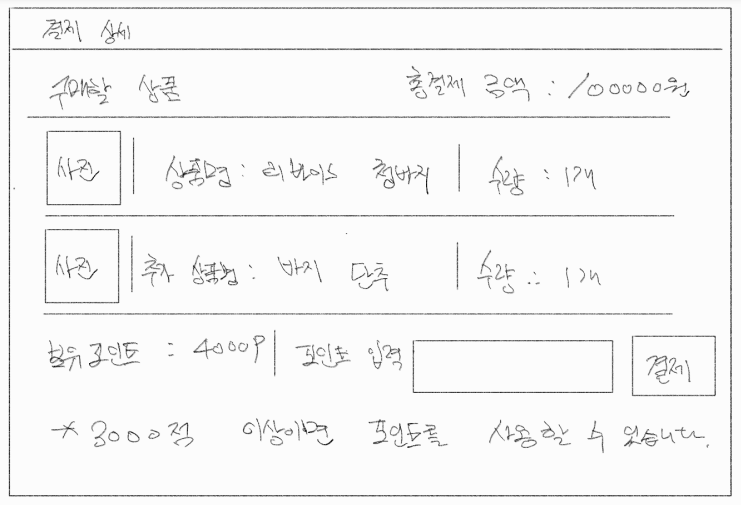 결제 상세
구매할 상품 총결제 금액 : 100000원
사진 상품명 : 리바이스 청바지 수량 : 1개
사진 추가 상품명 : 바지 단추 수량 : 1개
보유포인트 : 4000P 포인트 입력 결제
* 3000점 이상이면 포인트를 사용할 수 있습니다.